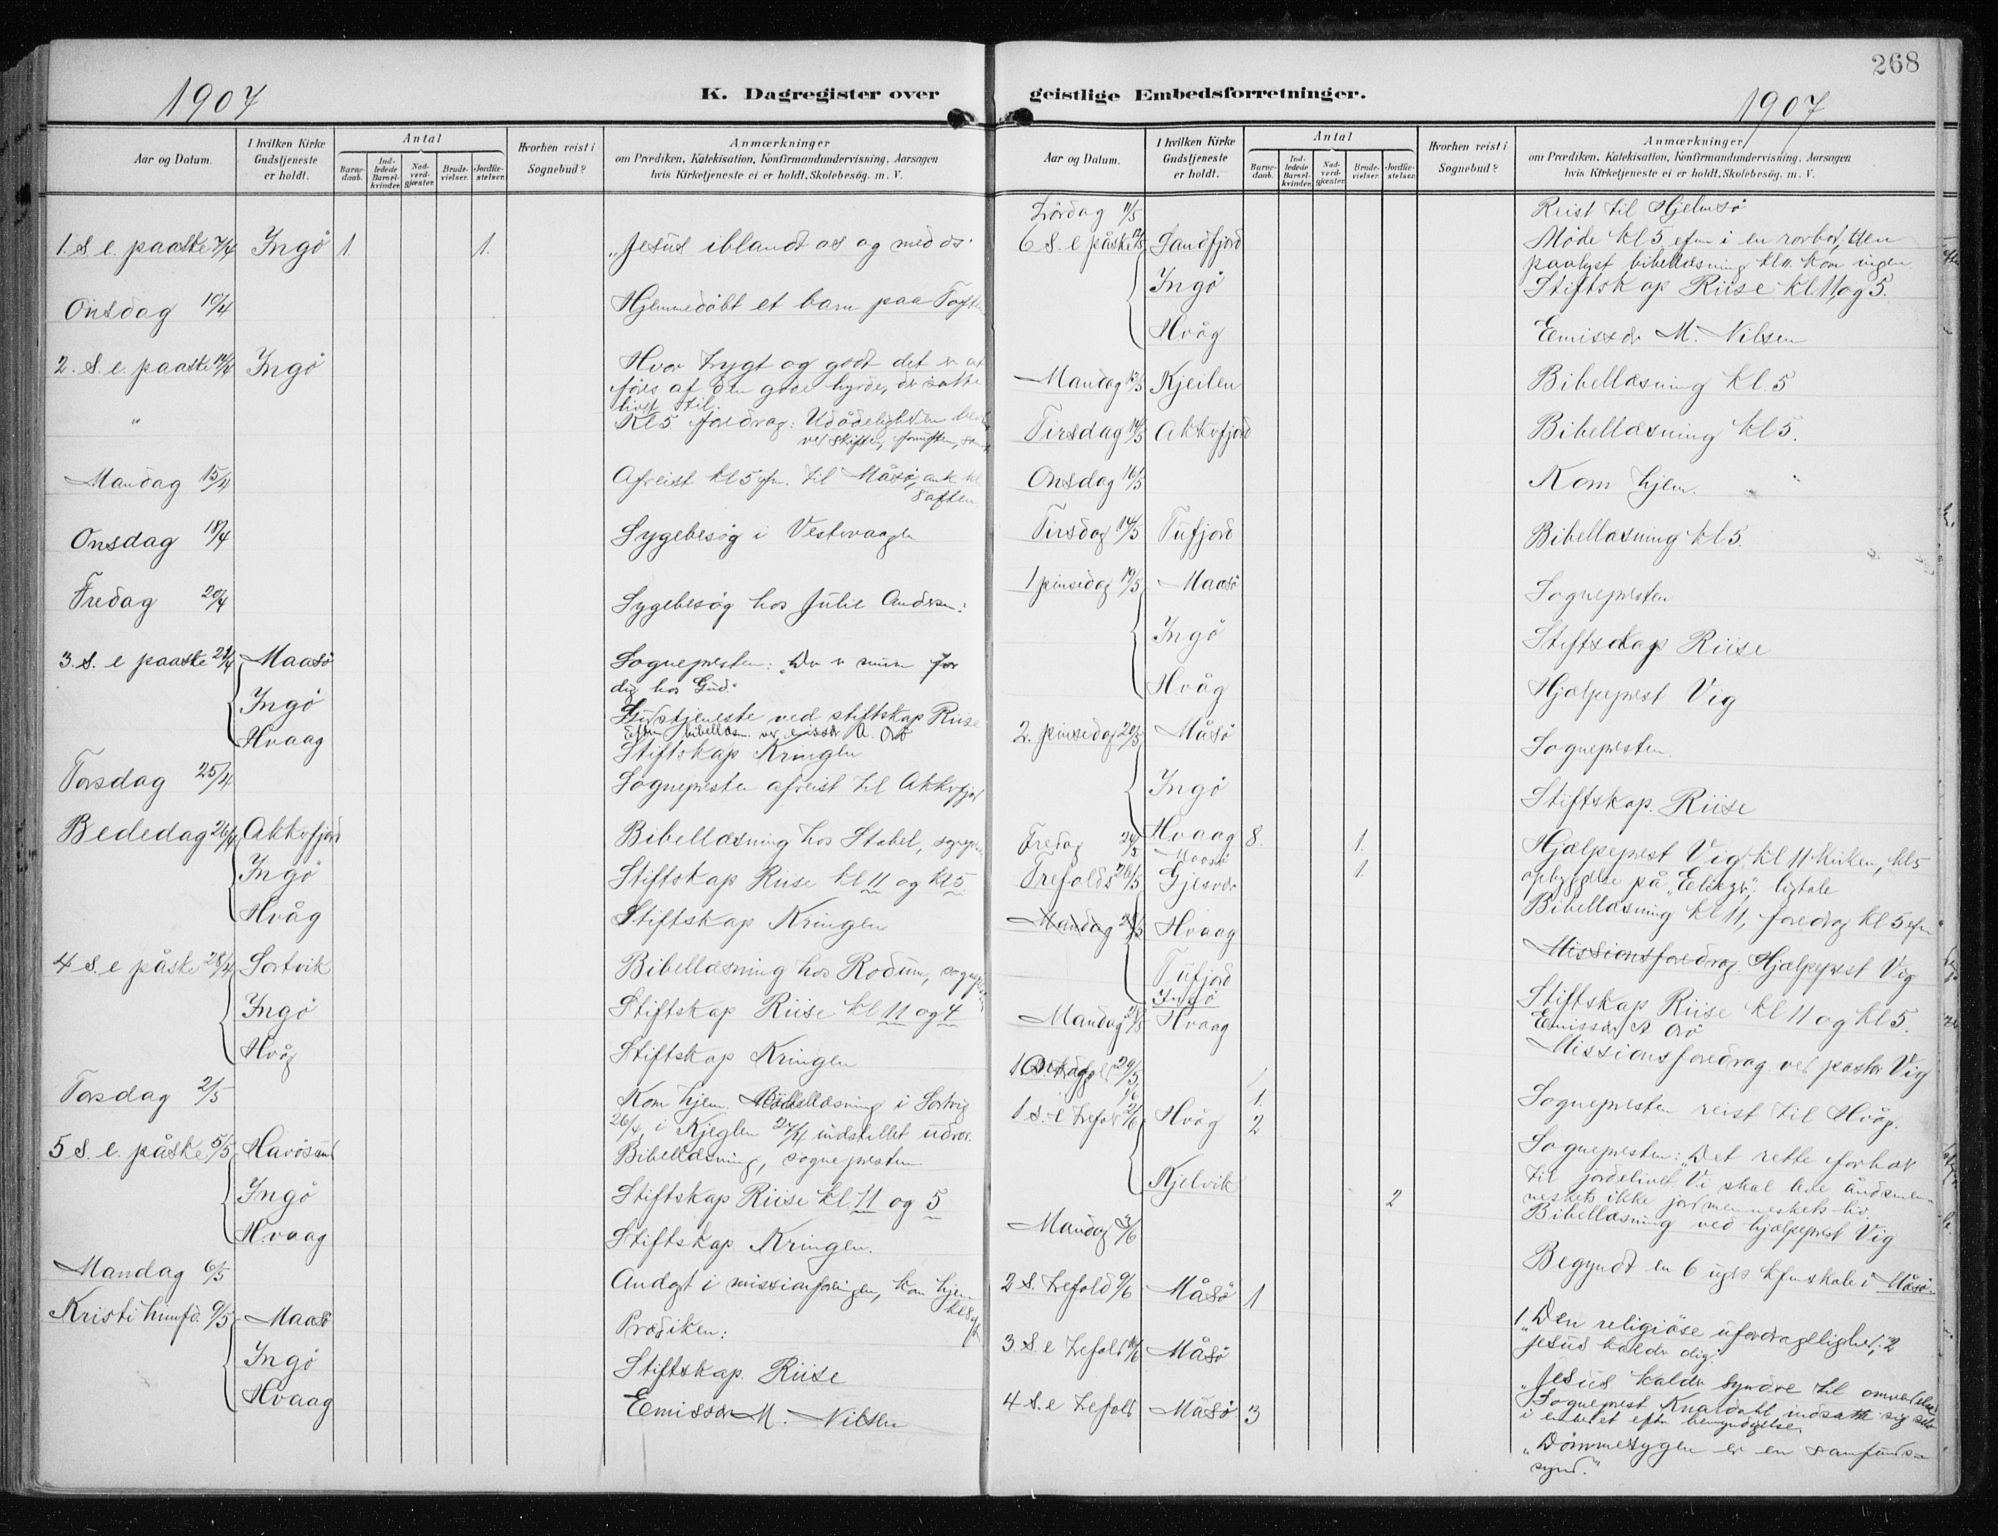 1907
K. Dagregister over
Aar og Datum.
I hvilken Kirke Gudstjeneste er holdt.
Antal
Barnedaab.
Indledede Barselkvinder.
Nadverdgjæster.
Brudevielser.
Jordfæstelser.
Hvorhen reist i Sognebud?
Anmærkninger
om Prædiken, Katekisation, Konfirmandundervisning, Aarsagen
hvis Kirketjeneste ei er holdt, Skolebesøg. m. V.
1. S. e. paaske 7/4 Ingö 1. 1. "Jesus iblandt os og med os"
Onsdag 10/4 Hjemmedöbt et barn paa
2. S. e. paaske 14/4 Ingö Hvor trygt og godt det er at
föres af den gode hyrde, der satte
livet til.
" Kl 5 foredrag: Udödeligheden
ved skriften, fornuften,
Mandag 15/4 Afreist kl 5 efm. til Måsö, ank kl
8 aften
Onsdag 18/4 Sygebesög i Vestervaagen
Fredag 20/4 Sygebesög hos Julie Andersen.
3. S. e paaske 21/4 Maasö Sognepresten: "Du er min for
dig hos Gud."
Ingö Gudstjeneste ved stiftskap Riise
Efm bibellæsn. ved emissær A. Orö
Hvaag Stiftskap Kringlen
Torsdag 25/4 Sognepresten afreist til Akkefjord
Bededag 26/4 Akkefjord Bibellæsning hos Stabel, sognepr.
Ingö Stiftskap Riise kl 11 og kl 5.
Hvåg Stiftskap Kringlen
4 S. e påske 28/4 Sortvik Bibellæsning hos Rodum, sognepr.
Ingö Stiftskap Riise kl 11 og 4
Hvåg Stiftskap Kringlen
Torsdag 2/5 Kom hjem. Bibellæsning i Sortvig
26/4, i Kjeglen 27/4 indstillet
5 S. e. påske 5/5 Havösund Bibellæsning, sognepresten
Ingö Stiftskap Riise kl. 11 og 5
Hvaag Stiftskap Kringlen.
Mandag 6/5 Andagt i missionforeningen, kom hjem
kl 8
Kristi himfd. 9/5 Maasö Prædiken:
Ingö Stiftskap. Riise
Hvaag Emissær M. Nilsen
268
geistlige Embedsforretninger.
1907
Aar og Datum.
I hvilken Kirke Gudstjeneste er holdt.
Antal
Barnedaab.
Indledede Barselkvinder.
Nadverdgjæster.
Brudevielser.
Jordfæstelser.
Hvorhen reist i Sognebud?
Anmærkninger
om Prædiken, Katekisation, Konfirmandundervisning, Aarsagen
hvis Kirketjeneste ei er holdt, Skolebesøg. m. V.
Lördag 11/5 Reist til Hjelmsö
6 S. e påske 12/5 Sandfjord Möde kl 5 efm i en rorbod, den
paalyst bibellæsning kl 11 kom ingen
Ingö Stiftskap Riise kl. 11 og 5.
Hvåg Emissær M. Nilsen
Mandag 13/5 Kjeilen Bibellæsning kl. 5
Tirsdag 14/5 Akkefjord Bibellæsning kl 5.
Onsdag 16/5 Kom hjem.
Tirsdag 14/5 Tufjord Bibellæsning kl 5.
1 pinsedag 19/5 Maasö Sognepresten
Ingö Stiftskap Riise
Hvåg Hjælpeprest Vig
2. pinsedag 20/5 Måsö Sognepresten.
Ingö Stiftskap. Riise
Fredag 24/5 Hvaag 8. 1. Hjælpeprest Vig kl 11 kirken, kl 5
Maasö opbyggelse på "Eliezer". ligtale
Trefolds 26/5 Gjesvær 1. Bibellæsning kl 11, foredrag kl 5 efm
Mandag Hvaag Missionsforedrag. Hjælpeprest Vig
Tufjord
Ingö Stiftskap Riise kl 11 og kl 5.
Emissær A Orö
Mandag Hvaag Missionsforedrag ved pastor Vig
Onsdag 29/5
1. Sognepresten reist til Hvåg.
1 S. e trefold 2/6 Hvåg 2 Sognepresten: "Det rette forhold
til jordelivet. Vi skal leve åndsmen-
neskets ikke jordmenneskets liv.
Kjelvik 2 Bibellæsning ved hjælpeprest Vig
Mandag 3/6 Begyndt en 6 ugers kfmskole i Måsö
2 S. trefold 9/6 Måsö 1 1, "Den religiöse ufordragelighet, 2
Jesus kalder dig."
3 S. e trefold 16/6 Måsö "Jesus kalder syndre til omvendelse"
4 S. e trefold Måsö 3 Sogneprest Knardahl indsatte sig selv
i embetet efter bemyndigelse.
"Dömmesygen er en samfunds-
synd."